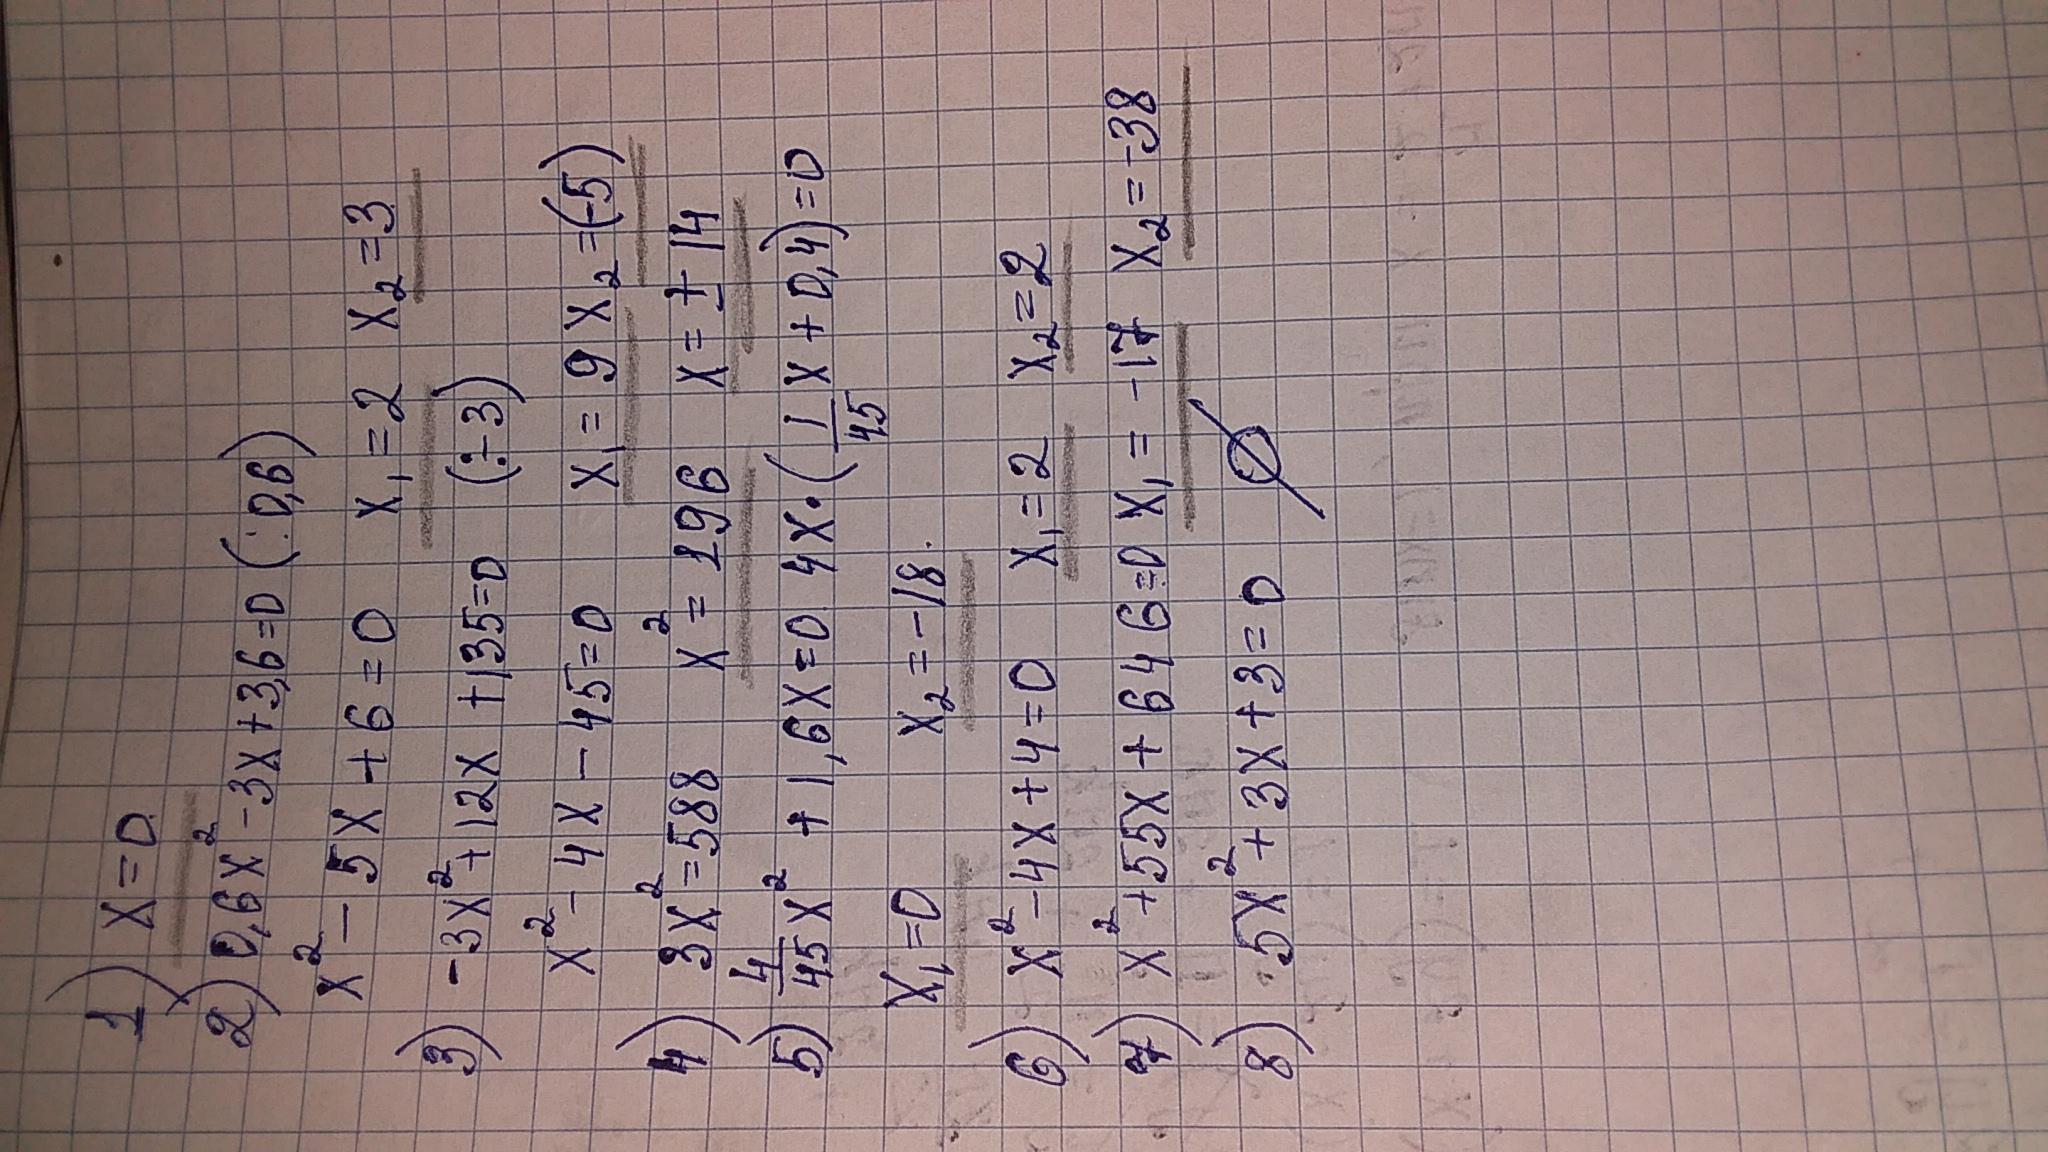 1) x=0
2) 0,6x²-3x+3,6=0 (:0,6)
x²-5x+6=0 x₁=2 x₂=3
3) -3x²+12x+135=0 (:-3)
x²-4x-45=0 x₁=9 x₂=(-5)
4) 3x²=588 x²=196 x=±14
5) 4/45x²+1,6x=0 4x·(1/45x+0,4)=0
x₁=0 x₂=-18.
6) x²-4x+4=0 x₁=2 x₂=2
7) x²+55x+646=0 x₁=-17 x₂=-38
8) 5x²+3x+3=0 Ø